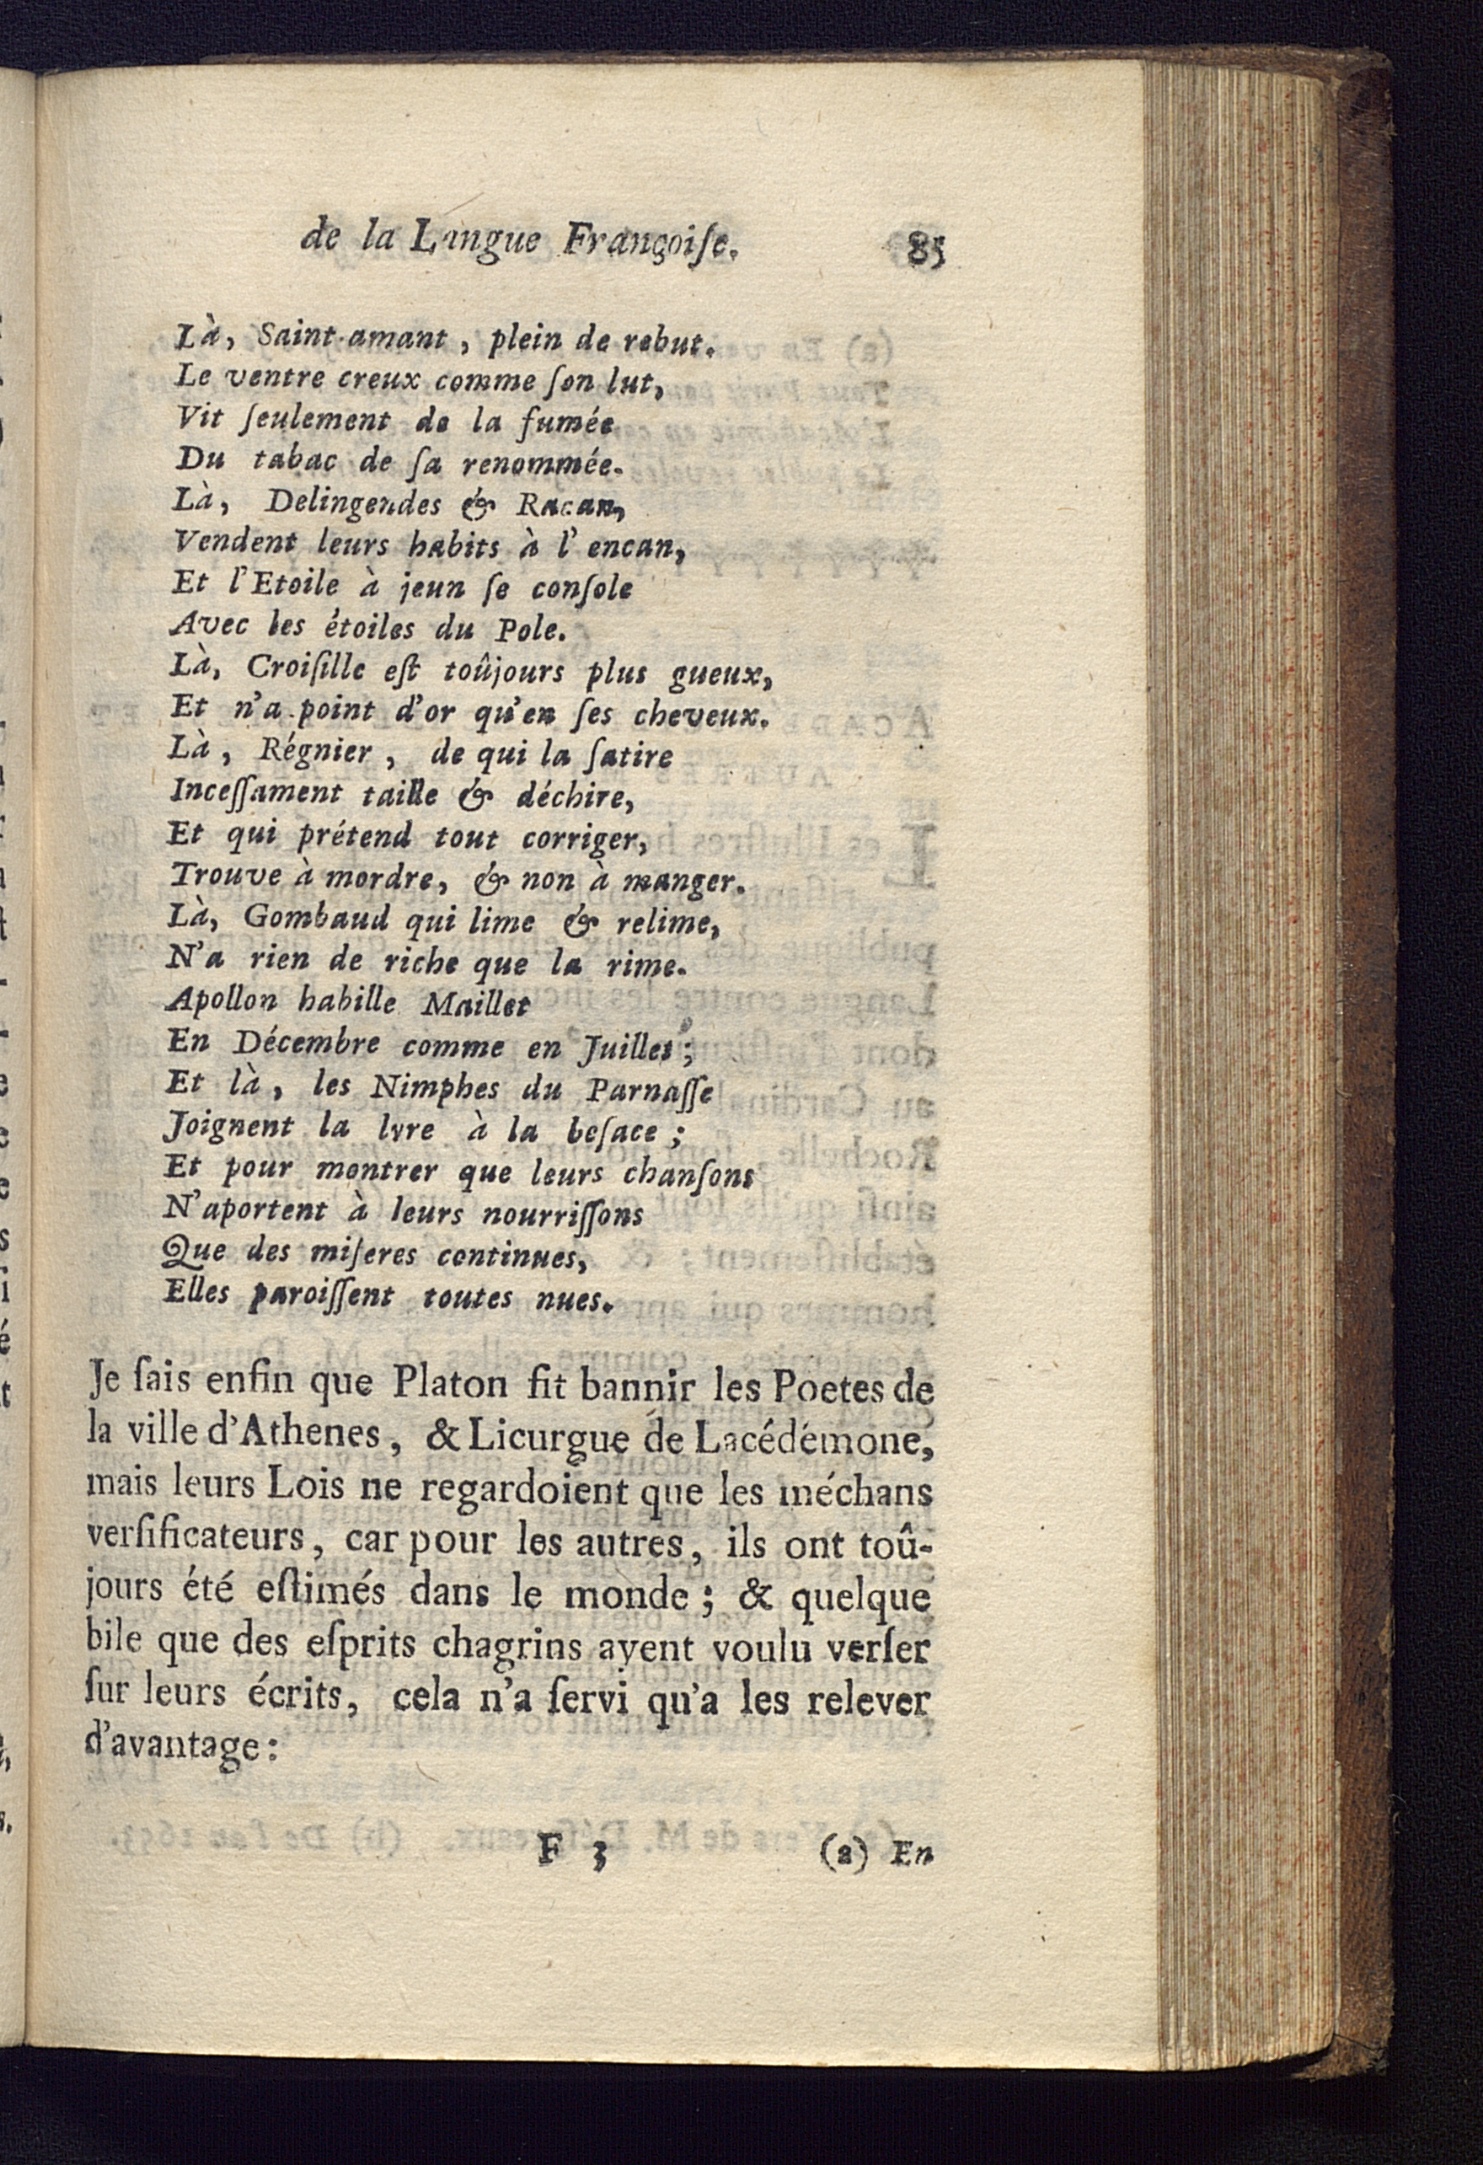 de la Langue Françoiſe. 85
Là, Saint-amant, plein de rebut.
Le ventre creux comme ſon lut,
Vit ſeulement de la fumée
Du tabac de ſa renommée.
Là, Delingendes & Racan,
Vendent leurs habits à l'encan,
Et l'Etoile à jeun ſe conſole
Avec les étoiles du Pole.
Là, Croiſille eſt toûjours plus gueux,
Et n'a point d'or qu'en ſes cheveux.
Là, Régnier, de qui la ſatire
Inceſſament taille & déchire,
Et qui prétend tout corriger,
Trouve à mordre, & non à manger.
Là, Gombaud qui lime & relime,
N'a rien de riche que la rime.
Apollon habille Maillet
En Décembre comme en Juillet;
Et là, les Nimphes du Parnaſſe
Joignent la lyre à la beſace;
Et pour montrer que leurs chanſons
N'aportent à leurs nourriſſons
Que des miſeres continues,
Elles paroiſſent toutes nues.
Je ſais enfin que Platon fit bannir les Poetes de
la ville d'Athenes, & Licurgue de Lacédémone,
mais leurs Lois ne regardoient que les méchans
verſificateurs, car pour les autres, ils ont toû-
jours été eſtimés dans le monde; & quelque
bile que des eſprits chagrins ayent voulu verſer
ſur leurs écrits, cela n'a ſervi qu'a les relever
d'avantage:
F 3 (a) En